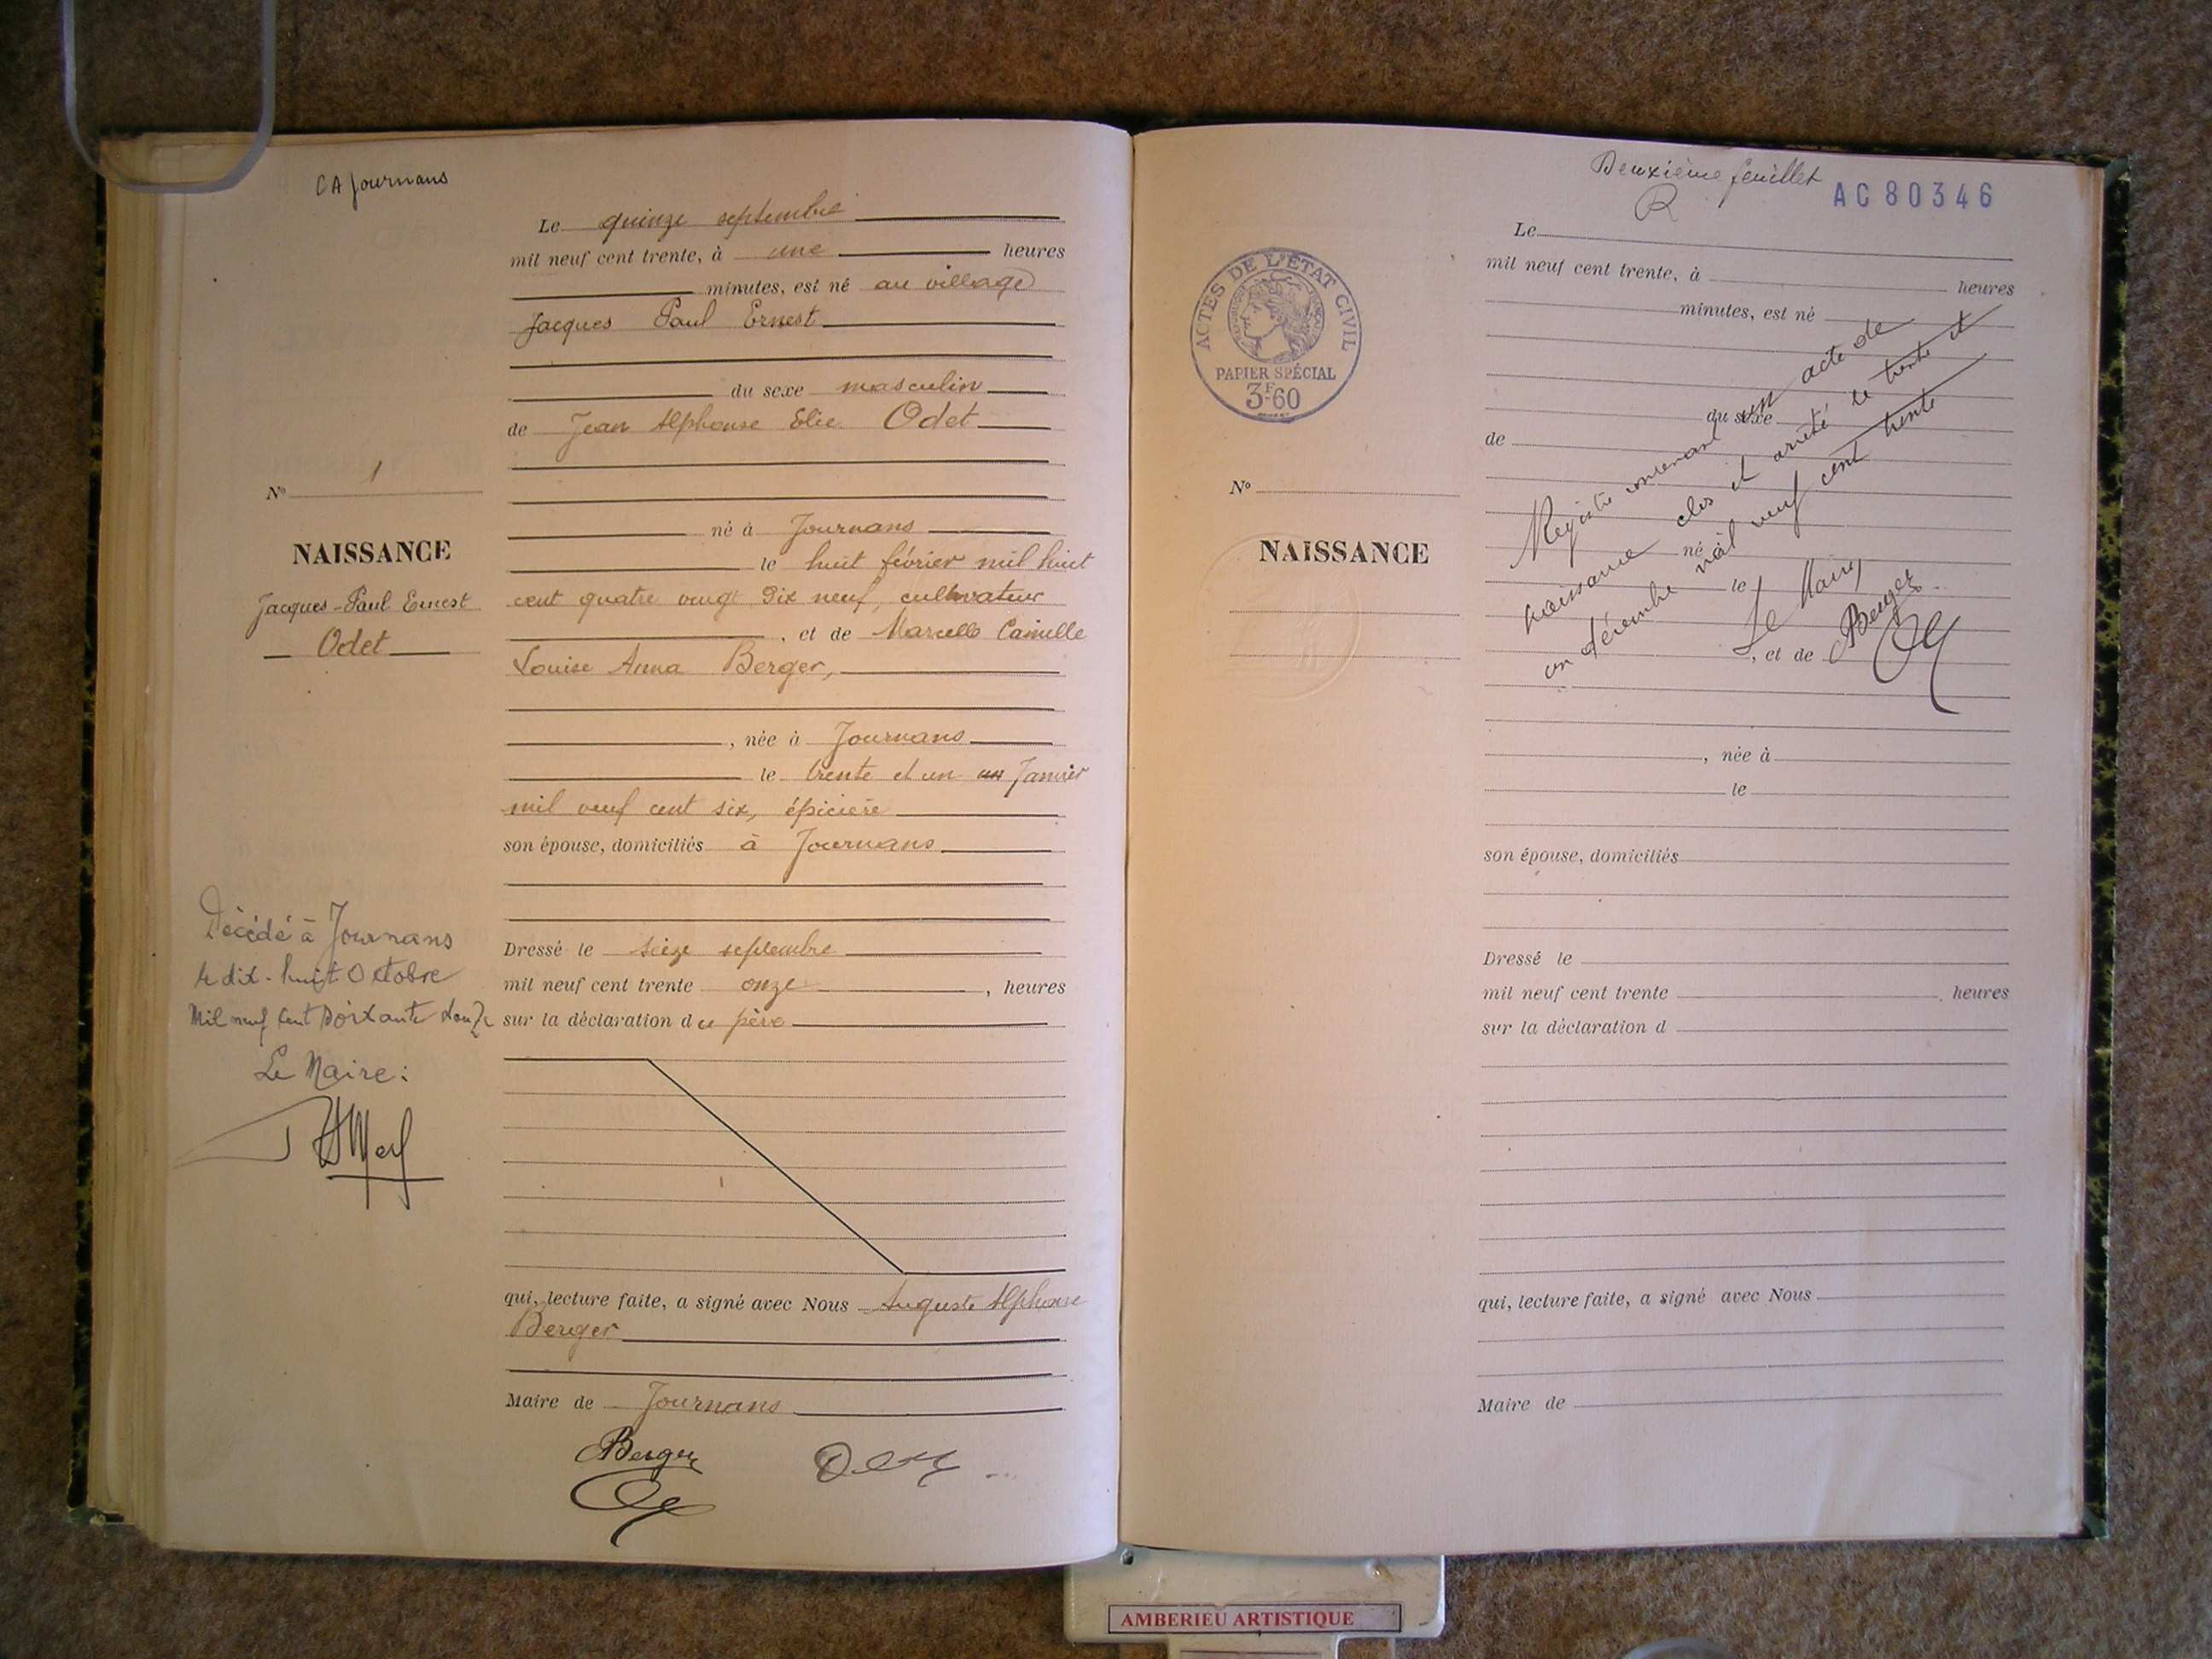 CA Journans
Le quinze septembre
mil neuf cent trente, à une heures
minutes, est né au village
Jacques Paul Ernest
du sexe masculin
de Jean Alphonse Elie Odet
né à Journans
le huit février mil huit
cent quatre vingt dix neuf, cultivateur
, et de Marcelle Camille
Louise Anna Berger,
, née à Journans
le trente et un Janvier
mil neuf cent six, épicière
son épouse, domiciliés à Journans
Dressé le seize septembre
mil neuf cent trente onze , heures
sur la déclaration du père
qui, lecture faite, a signé avec Nous Auguste Alphonse
Berger
Maire de Journans
Berger Odet
N° 1
NAISSANCE
Jacques-Paul Ernest
Odet
Décédé à Journans
le dix-huit Octobre
Mil neuf Cent Soixante douze
Le Maire:
Deuxième feuillet
AC 80346
ACTES DE L'ÉTAT CIVIL
RÉPUBLIQUE FRANÇAISE
PAPIER SPÉCIAL
3F60
N°
NAISSANCE
Le
mil neuf cent trente, à heures
minutes, est né
du sexe
de
né à
le
, et de
, née à
le
son épouse, domiciliés
Dressé le
mil neuf cent trente , heures
sur la déclaration d
qui, lecture faite, a signé avec Nous
Maire de
Registre contenant un acte de
naissance clos et arrêté le trente et
un décembre mil neuf cent trente
Le Maire
Berger
AMBERIEU ARTISTIQUE